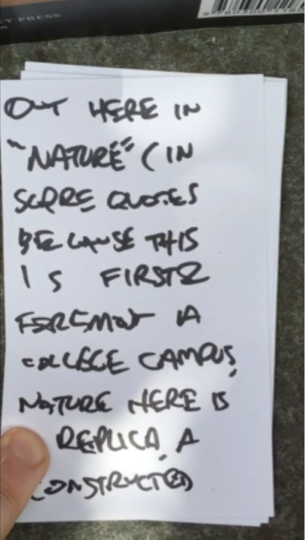 Y PRESS
OUT HERE IN
"NATURE" (IN
SCARE QUOTES
BECAUSE THIS
IS FIRST &
FOREMOST A
COLLEGE CAMPUS,
NATURE HERE IS
REPLICA, A
CONSTRUCTED